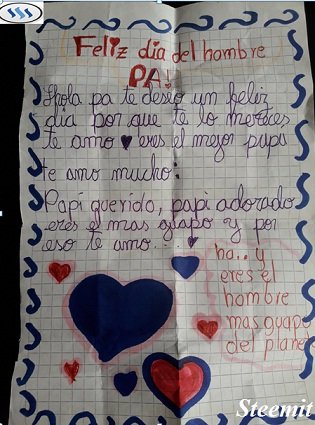 Feliz dia del hombre
PA!
Hola pa te deseo un feliz
dia por que te lo mereces
te amo eres el mejor papa
te amo mucho.
Papi querido, papi adorado
eres el mas guapo y por
eso te amo...
ha.. y
eres el
hombre
mas guapo
del plane
Steemit